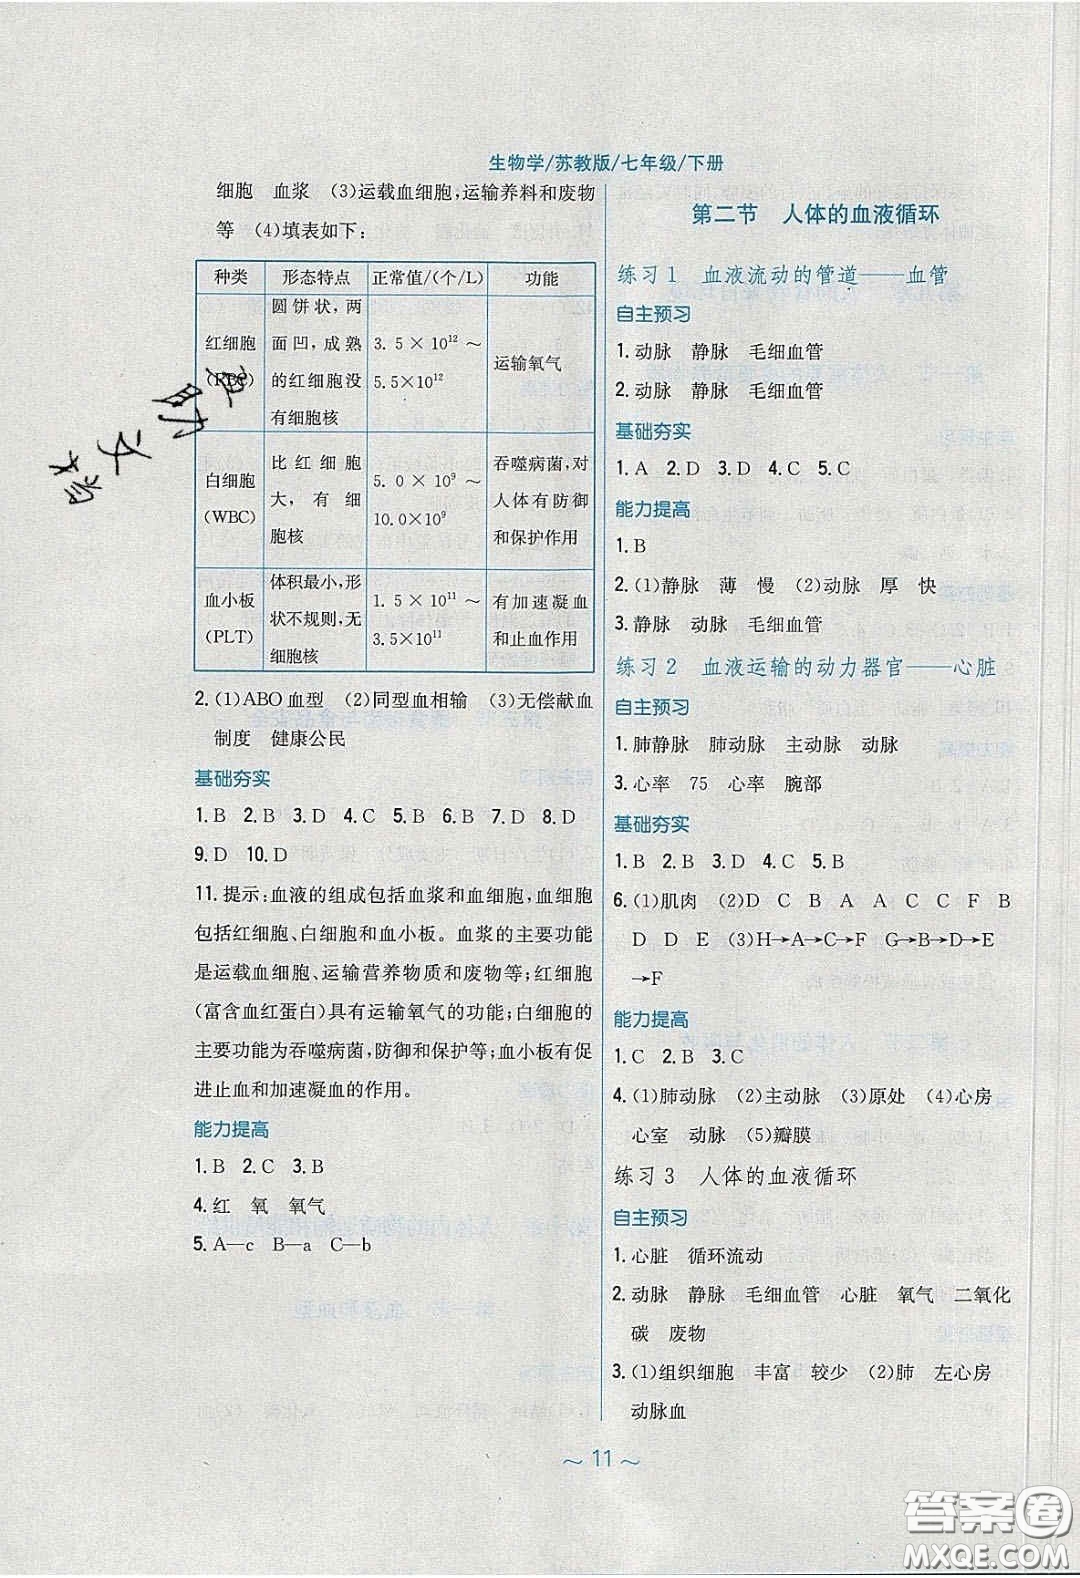 生物学/苏教版/七年级/下册
细胞 血浆 (3)运载血细胞,运输养料和废物
等 (4)填表如下:
种类 形态特点 正常值/(个/L) 功能
红细胞
(RBC)
圆饼状,两
面凹,成熟
的红细胞没
有细胞核
3.5×10¹²～
5.5×10¹²
运输氧气
白细胞
(WBC)
比红细胞
大,有细
胞核
5.0×10⁹～
10.0×10⁹
吞噬病菌,对
人体有防御
和保护作用
血小板
(PLT)
体积最小,形
状不规则,无
细胞核
1.5×10¹¹～
3.5×10¹¹
有加速凝血
和止血作用
2.(1)ABO血型 (2)同型血相输 (3)无偿献血
制度 健康公民
基础夯实
1.B 2.B 3.D 4.C 5.B 6.B 7.D 8.D
9.D 10.D
11.提示:血液的组成包括血浆和血细胞,血细胞
包括红细胞、白细胞和血小板。血浆的主要功能
是运载血细胞、运输营养物质和废物等;红细胞
(富含血红蛋白)具有运输氧气的功能;白细胞的
主要功能为吞噬病菌,防御和保护等;血小板有促
进止血和加速凝血的作用。
能力提高
1.B 2.C 3.B
4.红 氧 氧气
5.A—c B—a C—b
第二节 人体的血液循环
练习1 血液流动的管道——血管
自主预习
1.动脉 静脉 毛细血管
2.动脉 静脉 毛细血管
基础夯实
1.A 2.D 3.D 4.C 5.C
能力提高
1.B
2.(1)静脉 薄 慢 (2)动脉 厚 快
3.静脉 动脉 毛细血管
练习2 血液运输的动力器官——心脏
自主预习
1.肺静脉 肺动脉 主动脉 动脉
3.心率 75 心率 腕部
基础夯实
1.B 2.B 3.D 4.C 5.B
6.(1)肌肉 (2)D C B A A C C F B
D D E (3)H→A→C→F G→B→D→E
→F
能力提高
1.C 2.B 3.C
4.(1)肺动脉 (2)主动脉 (3)原处 (4)心房
心室 动脉 (5)瓣膜
练习3 人体的血液循环
自主预习
1.心脏 循环流动
2.动脉 静脉 毛细血管 心脏 氧气 二氧化
碳 废物
3.(1)组织细胞 丰富 较少 (2)肺 左心房
动脉血
～11～
答案圈
MXQE.COM